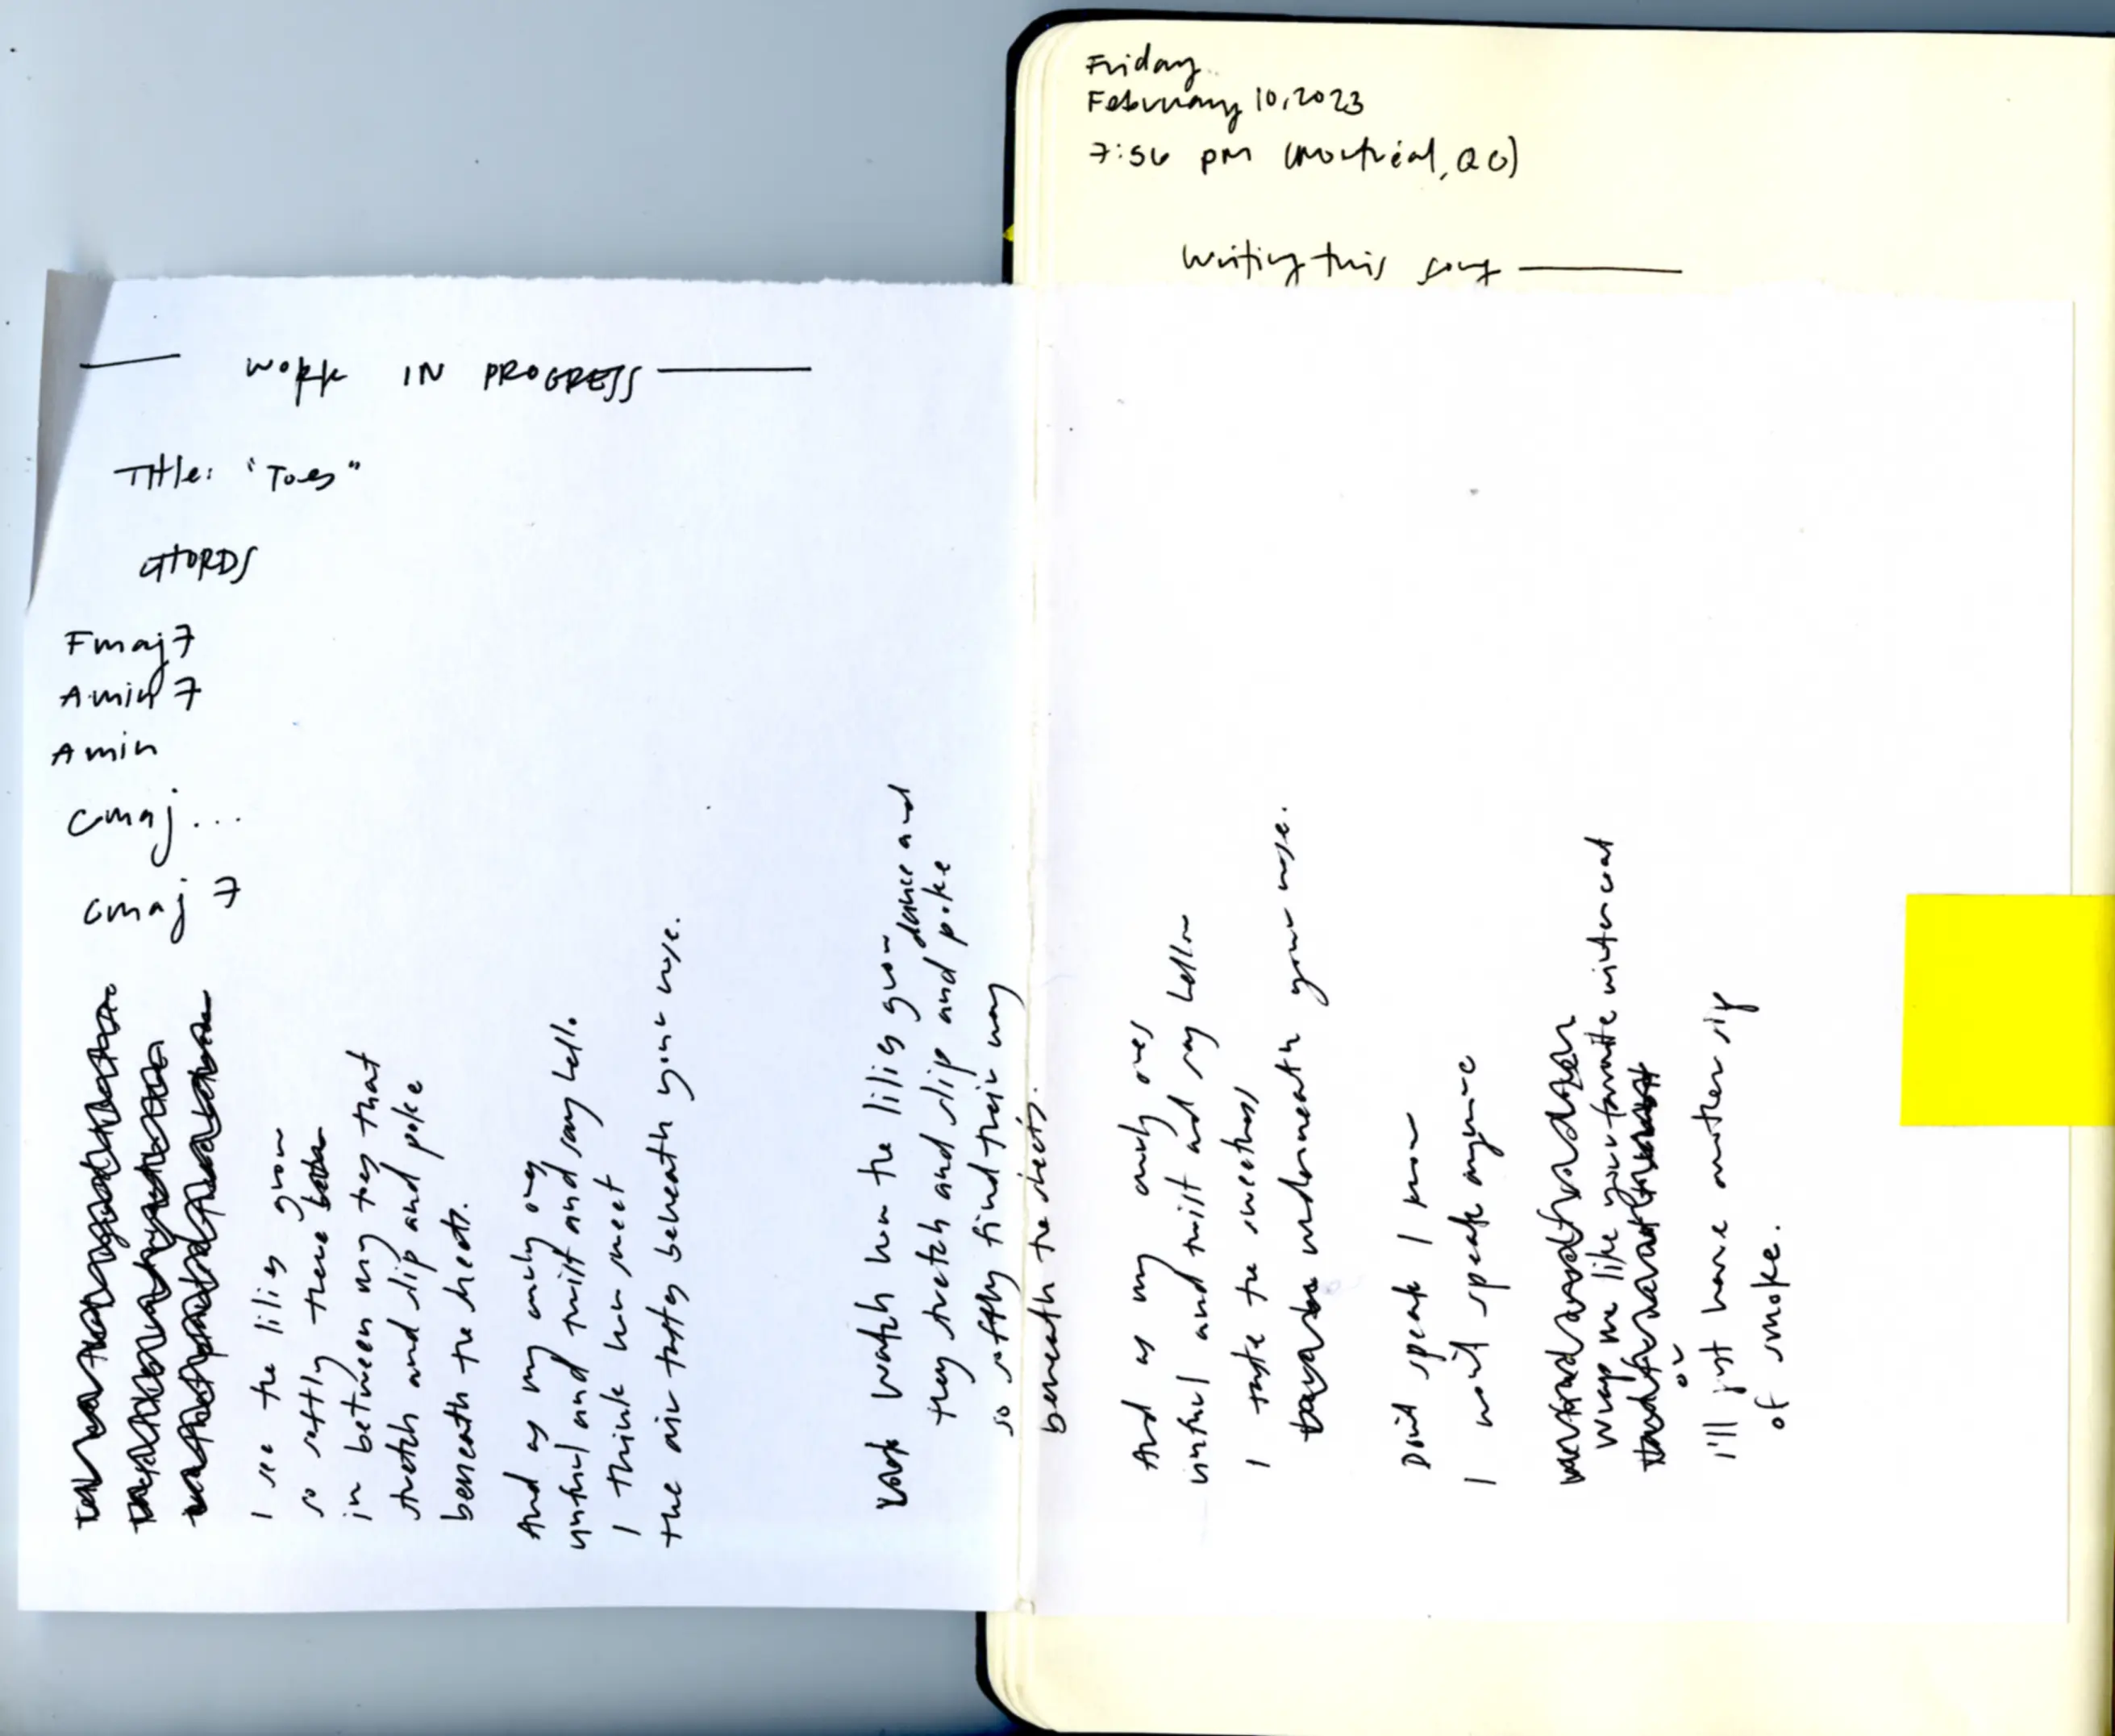 Friday
February 10, 2023
7:56 pm (Montréal, QC)
Writing this song
WORK IN PROGRESS
Title: "Toes"
CHORDS
Fmaj7
Amin7
Amin
Cmaj...
Cmaj7
I see the lilies grow
so softly there
in between my toes that
stretch and slip and poke
beneath the sheets.
And as my curly ones
unfurl and twist and say hello.
I think how sweet
the air tastes beneath your nose.
watch how the lilies grow
dance and
they stretch and slip and poke
so softly find their way
beneath the sheets.
And as my curly ones
unfurl and twist and say hello
I taste the sweetness
underneath your nose.
Don't speak I know
I won't speak anymore
wrap me like your favourite winter coat
or
I'll just have another sip
of smoke.